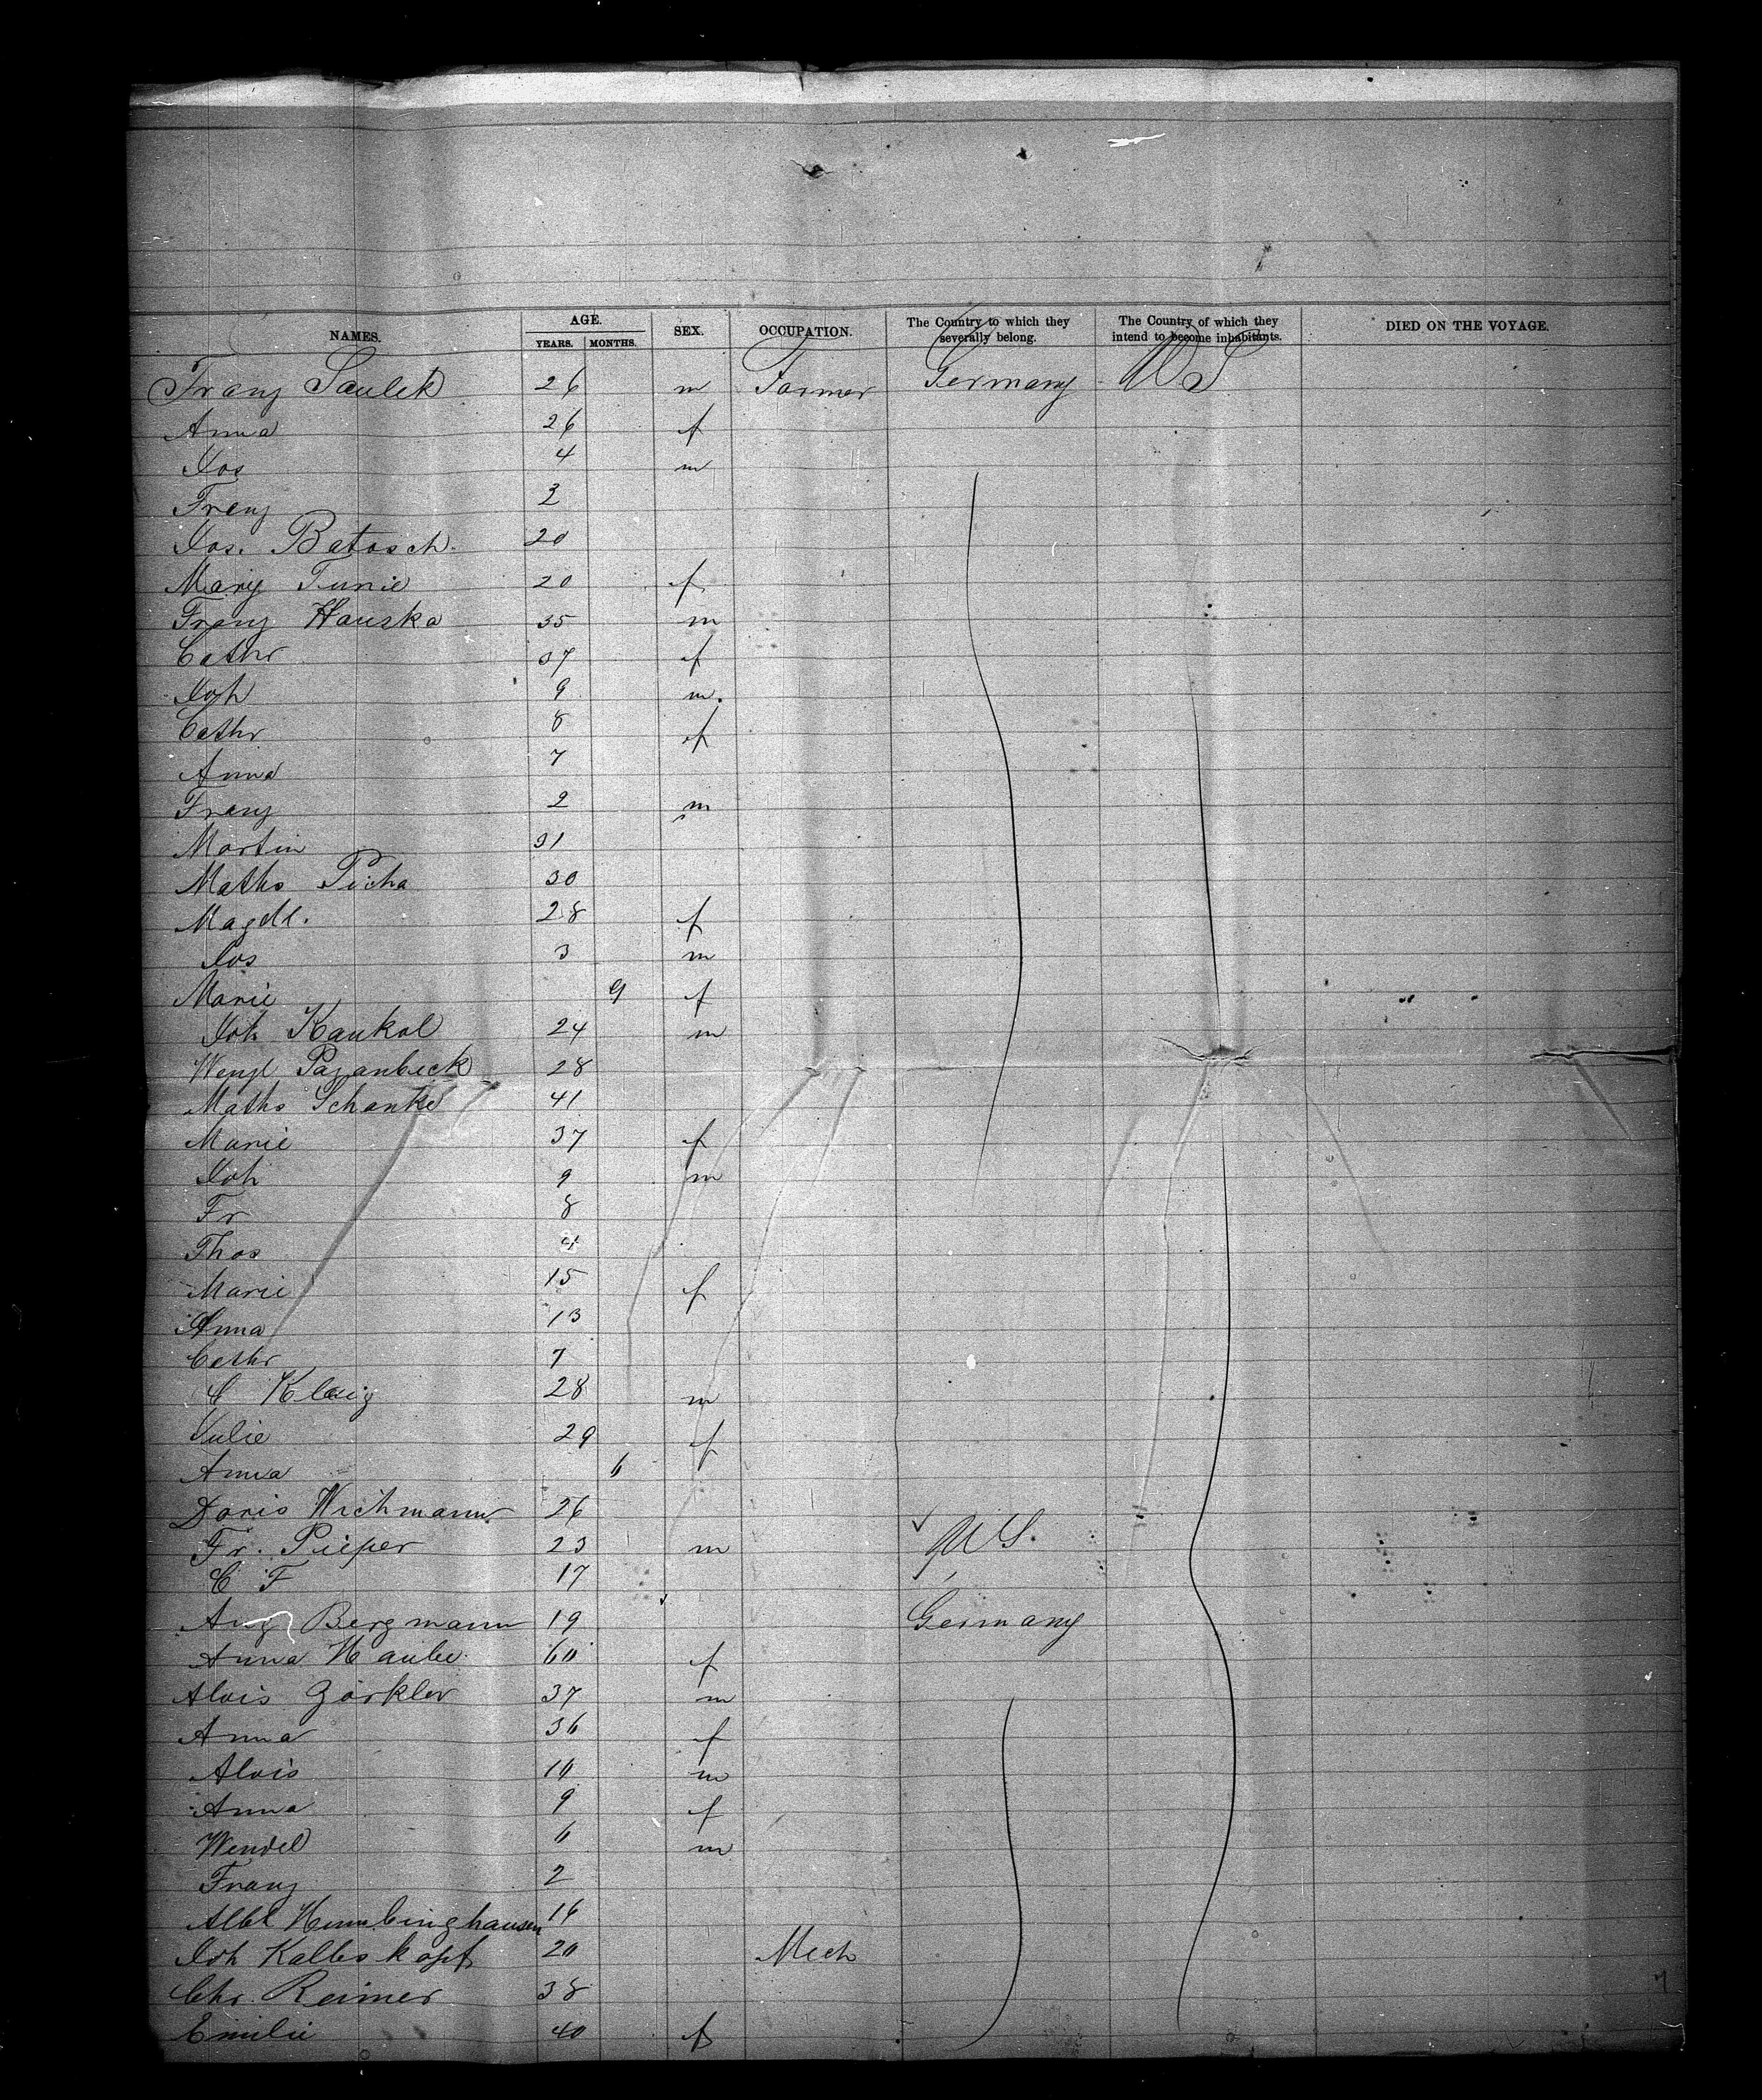 NAMES. AGE. YEARS. MONTHS. SEX. OCCUPATION. The Country to which they severally belong. The Country of which they intend to become inhabitants. DIED ON THE VOYAGE.
Franz Saulek 26 m Farmer Germany US
Anna 26 f
Jos 4 m
Franz 3
Jos. Batosch 20
Mary Tunie 20 f
Franz Hauska 35 m
Cathr 37 f
Joh 9 m.
Cathr 8 f
Anna 7
Franz 2 m
Martin 31
Maths Picha 30
Magdl. 28 f
Jos 3 m
Marie 9 f
Joh Kaukol 24 m
Wenzl Pazanbeck 28
Maths Schanke 41
Marie 37 f
Joh 9 m
Fr 8
Thos 4
Marie 15 f
Anna 13
Cathr 7
C 28 m
Julie 29 f
Anna 6
Doris Wichmann 26
Fr. Pieper 23 m US.
C F 17
Aug Bergmann 19 Germany
Anna Haube 60 f
Alois Görkler 37 m
Anna 36 f
Alois 10 m
Anna 9 f
Wendel 6 m
Franz 2
Albt Hemminghausen 16
Joh Kalbskopf 20 Mech
Chr. Reimer 38
Emilie 40 f